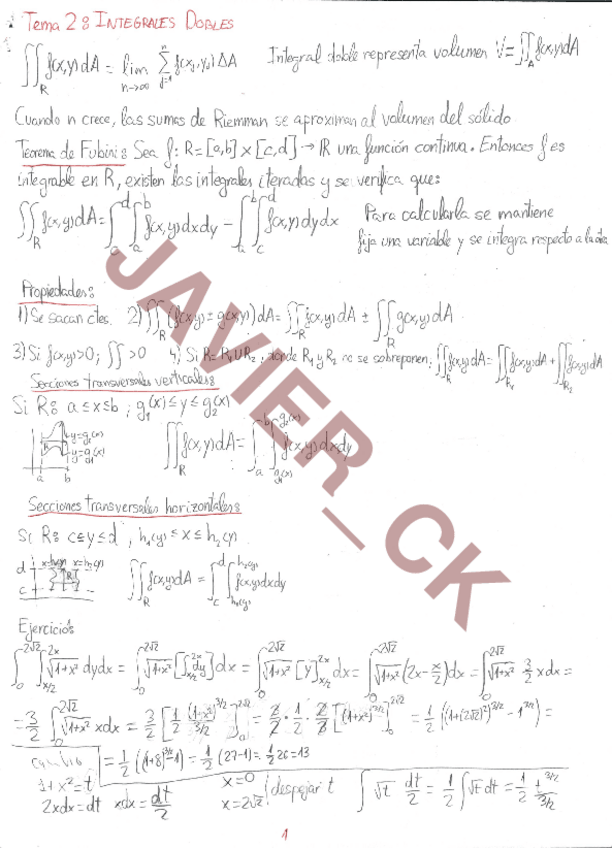 Tema 2: INTEGRALES DOBLES
∬_R f(x,y)dA = lim_{n→∞} Σ_{j=1}^{n} f(x_j,y_j)ΔA Integral doble representa volumen V=∬_A f(x,y)dA
Cuando n crece, las sumas de Riemman se aproximan al volumen del sólido
Teorema de Fubini: Sea f: R=[a,b]×[c,d]→ℝ una función continua. Entonces f es
integrable en R, existen las integrales iteradas y se verifica que:
∬_R f(x,y)dA = ∫_c^d ∫_a^b f(x,y)dxdy = ∫_a^b ∫_c^d f(x,y)dydx Para calcularla se mantiene
fija una variable y se integra respecto a la otra
Propiedades:
1) Se sacan ctes. 2) ∬_R (f(x,y) ± g(x,y))dA = ∬_R f(x,y)dA ± ∬_R g(x,y)dA
3) Si f(x,y)>0; ∬>0 4) Si R=R₁∪R₂, donde R₁ y R₂ no se sobreponen; ∬_R f(x,y)dA = ∬_{R₁} f(x,y)dA + ∬_{R₂} f(x,y)dA
Secciones transversales verticales:
Si R: a≤x≤b ; g₁(x)≤y≤g₂(x)
y=g₂(x)
R
y=g₁(x)
a b
∬_R f(x,y)dA = ∫_a^b ∫_{g₁(x)}^{g₂(x)} f(x,y)dxdy
Secciones transversales horizontales:
Si R: c≤y≤d , h₁(y)≤x≤h₂(y)
d x=h₁(y) x=h₂(y)
R
c
∬_R f(x,y)dA = ∫_c^d ∫_{h₁(y)}^{h₂(y)} f(x,y)dxdy
Ejercicios
∫_0^{2√2} ∫_{x/2}^{2x} √(1+x²) dydx = ∫_0^{2√2} √(1+x²) [∫_{x/2}^{2x} dy] dx = ∫_0^{2√2} √(1+x²) [y]_{x/2}^{2x} dx = ∫_0^{2√2} √(1+x²) (2x-x/2)dx = ∫_0^{2√2} √(1+x²) 3/2 xdx =
= 3/2 ∫_0^{2√2} √(1+x²) xdx = 3/2 [1/2 (1+x²)^{3/2}/(3/2)]_0^{2√2} = 3/2 · 1/2 · 2/3 [(1+x²)^{3/2}]_0^{2√2} = 1/2 ((1+(2√2)²)^{3/2} - 1^{3/2}) =
= 1/2 ((1+8)^{3/2} - 1) = 1/2 (27-1) = 1/2 26 = 13
cambio
1+x²=t
2xdx=dt xdx=dt/2
x=0
x=2√2
despejar t
∫ √t dt/2 = 1/2 ∫ √t dt = 1/2 t^{3/2}/(3/2)
1
JAVIER_CK